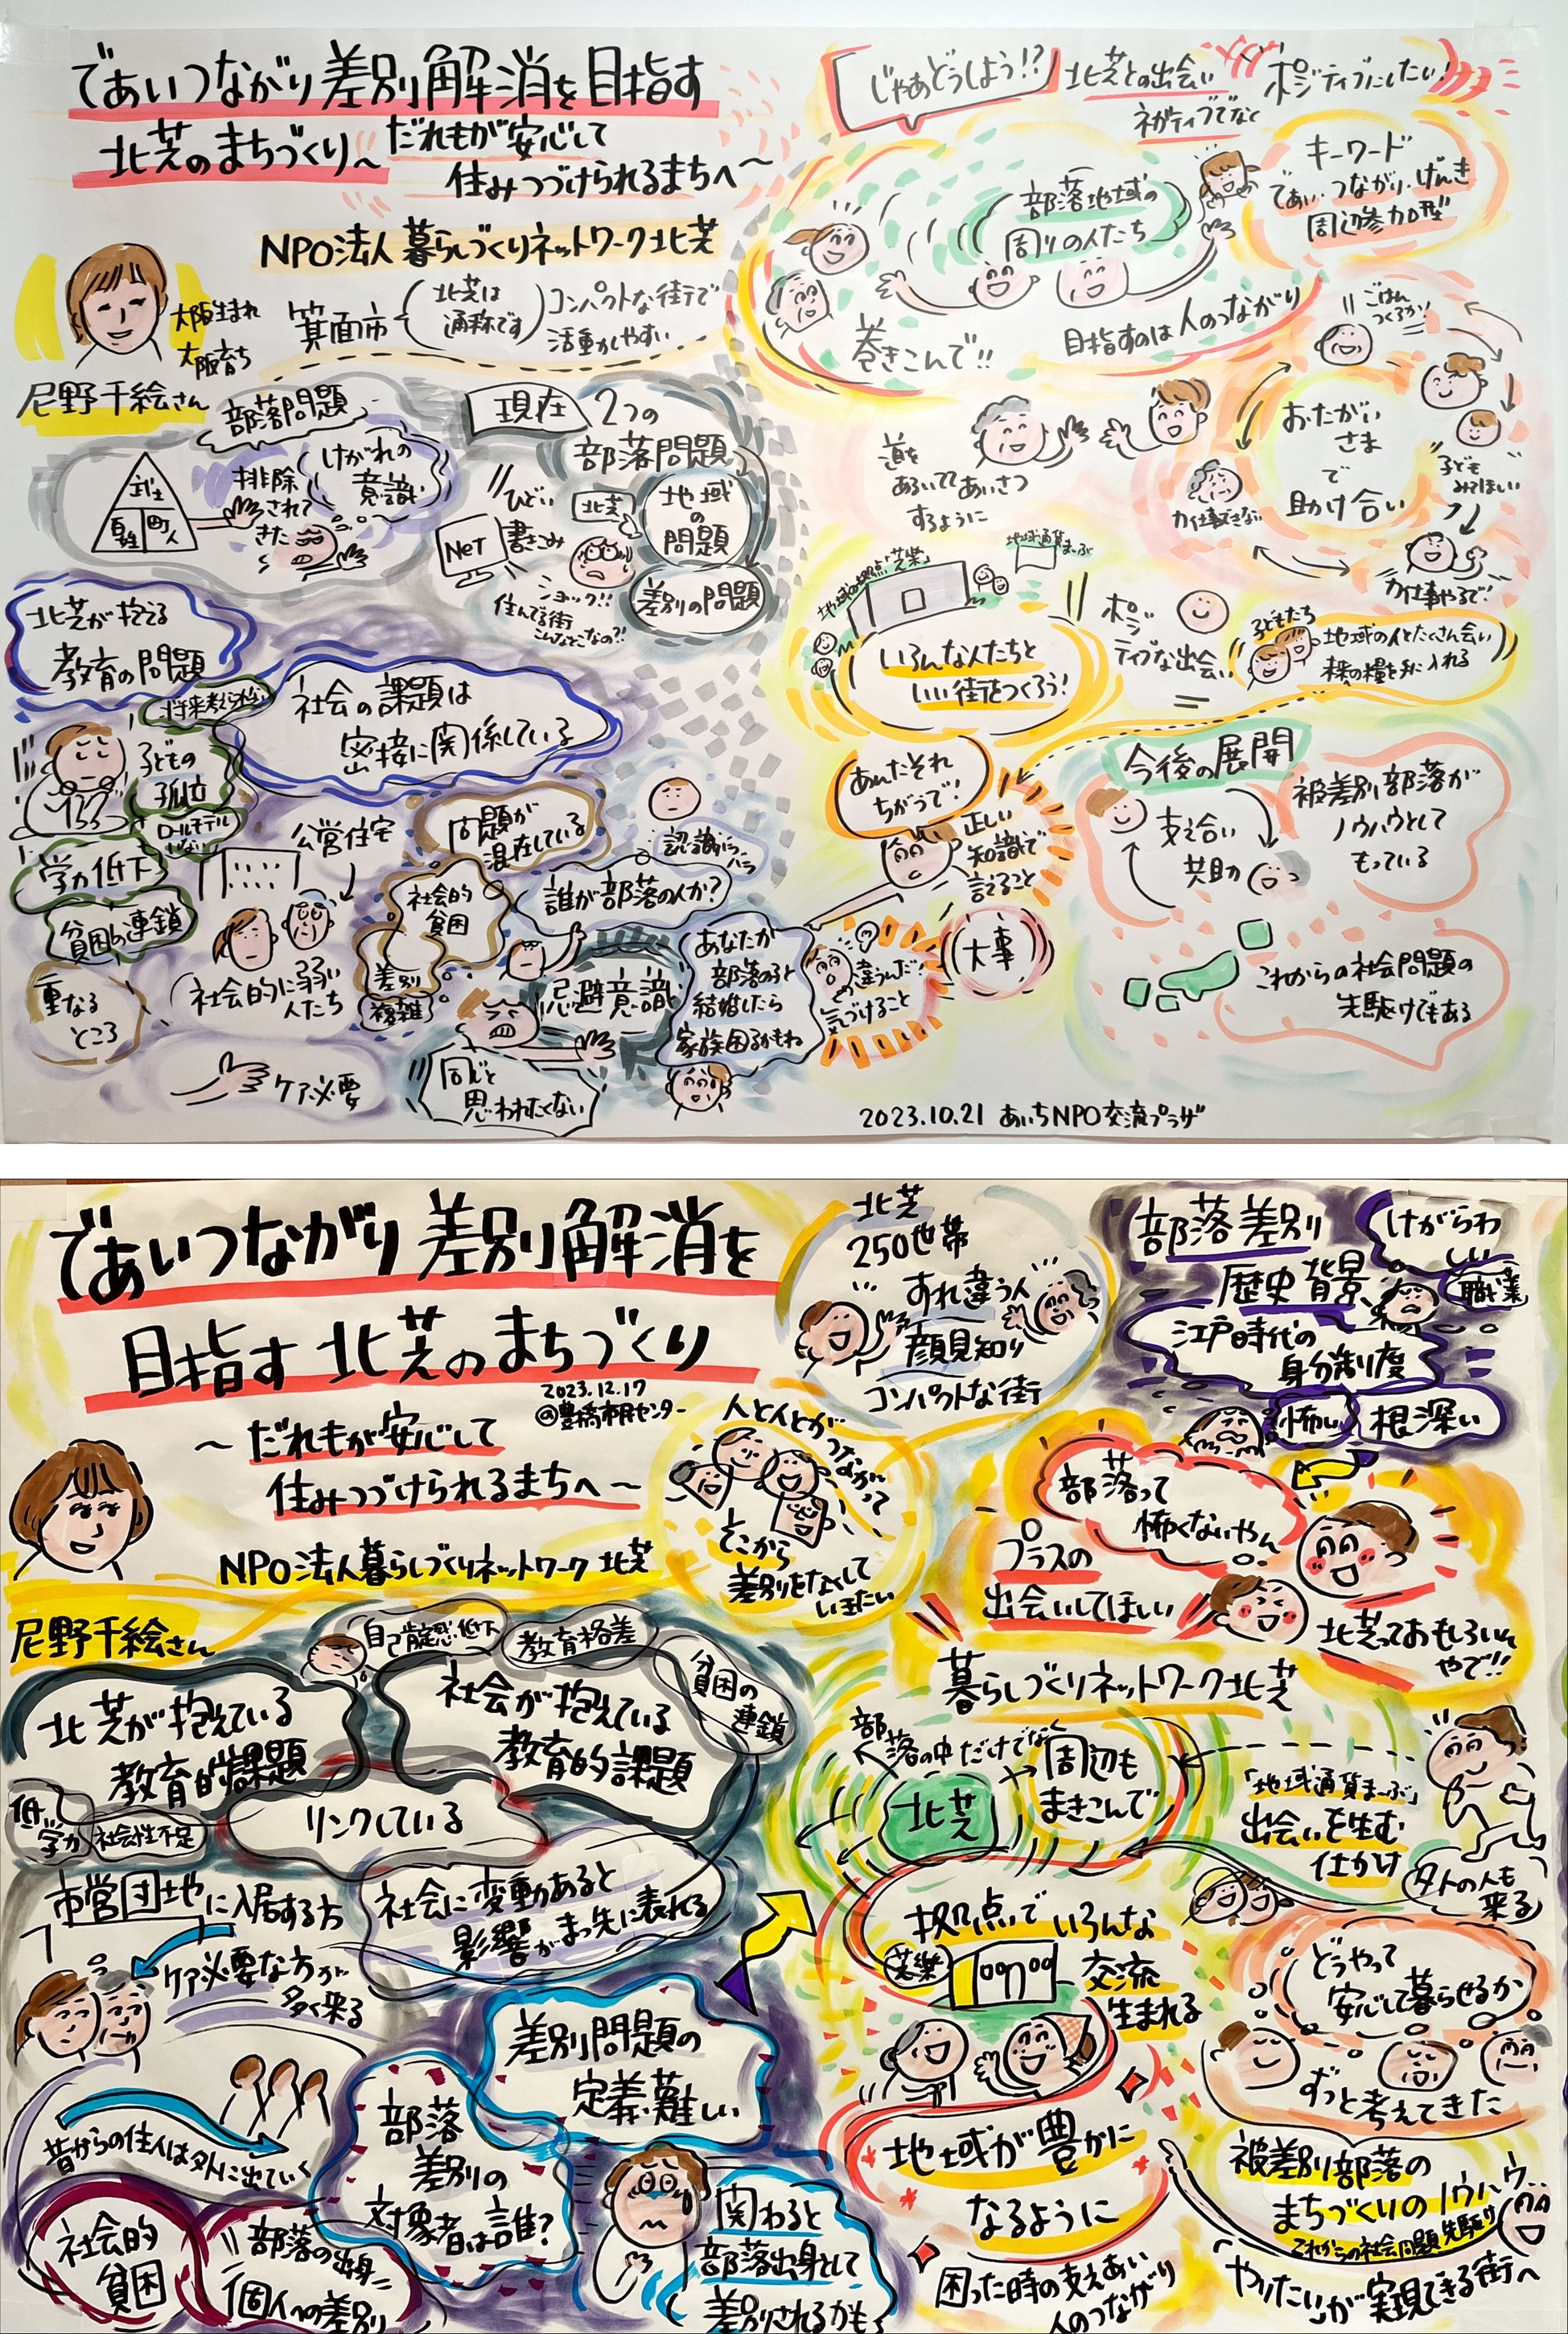 であいつながり差別解消を目指す
北芝のまちづくり〜だれもが安心して
住みつづけられるまちへ〜
NPO法人暮らしづくりネットワーク北芝
大阪生まれ
大阪育ち
尼野千絵さん
箕面市
北芝は
通称です
コンパクトな街で
活動しやすい
部落問題
武士
百姓
町人
排除
されて
きた
けがれの
意識
現在
2つの
部落問題
地域
の
問題
差別の問題
北芝
ひどい
書きこみ
NeT
ショック!!
住んでる街
こんなとこなの?!
北芝が抱える
教育の問題
社会の課題は
密接に関係している
子どもの
孤立
ロールモデル
学力低下
貧困の連鎖
重なる
ところ
公営住宅
社会的に弱い
人たち
ケア必要
問題が
混在している
社会的
貧困
差別
複雑
認識バラバラ
誰が部落の人か?
忌避意識
同じと
思われたくない
あなたが
部落の子と
結婚したら
家族困るかもね
じゃあどうしよう!?
北芝との出会い
ネガティブでなく
ポジティブにしたい!
キーワード
であい・つながり・げんき
周辺参加型
部落地域の
周りの人たち
巻きこんで!!
目指すのは人のつながり
道を
あるいててあいさつ
するように
ごはん
つくろか!
おたがい
さま
で
助け合い
子ども
みてほしい
力仕事できない
力仕事やるで!
地域の拠点「芝樂」
地域通貨まーぶ
いろんな人たちと
いい街をつくろう!
ポジ
ティブな出会い
子どもたち
地域の人とたくさん会い
未来の糧を手に入れる
あんたそれ
ちがうで!
正しい
知識で
言えること
違うんだ!
気づけること
大事
今後の展開
支え合い
共助
被差別部落が
ノウハウとして
もっている
これからの社会問題の
先駆けでもある
2023.10.21 あいちNPO交流プラザ
であいつながり差別解消を
目指す北芝のまちづくり
2023.12.17
@豊橋市民センター
〜だれもが安心して
住みつづけられるまちへ〜
NPO法人暮らしづくりネットワーク北芝
尼野千絵さん
北芝
250世帯
すれ違う人
顔見知り
コンパクトな街
人と人とがつながって
そこから
差別をなくして
いきたい
部落差別
歴史背景
けがらわ
職業
江戸時代の
身分制度
怖い
根深い
部落って
怖くないやん
プラスの
出会いしてほしい
北芝っておもしろいん
やで!!
自己肯定感低下
教育格差
貧困の
連鎖
北芝が抱えている
教育的課題
社会が抱えている
教育的課題
リンクしている
低い
学力
社会性不足
市営団地に入居する方
ケア必要な方が
多く来る
社会に変動あると
影響がまっ先に表れる
昔からの住人は外に出ていく
社会的
貧困
部落の出身
個人への差別
部落
差別の
対象者は誰?
差別問題の
定義難しい
関わると
部落出身として
差別されるかも
暮らしづくりネットワーク北芝
部落の中だけでなく
北芝
周辺も
まきこんで
「地域通貨まーぶ」
出会いを生む
仕かけ
外の人も
来る
拠点でいろんな
芝樂
交流
生まれる
どうやって
安心して暮らせるか
ずっと考えてきた
地域が豊かに
なるように
困った時の支えあい
人のつながり
被差別部落の
まちづくりのノウハウ
これからの社会問題先駆け
やりたいが実現できる街へ